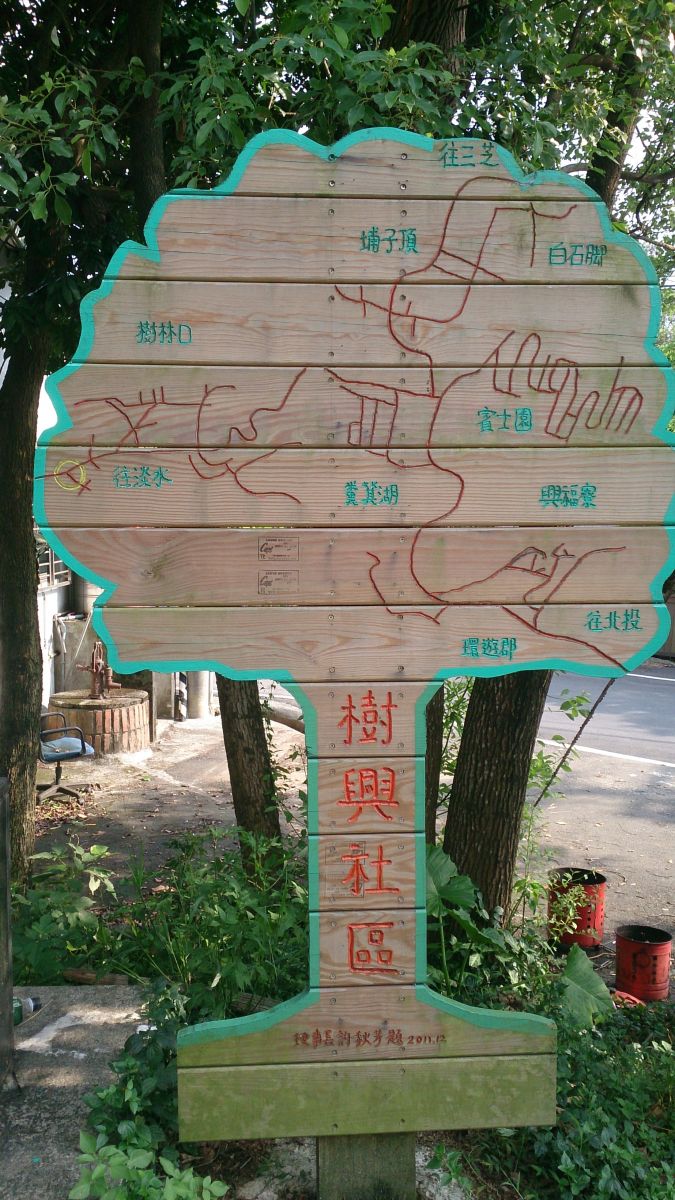 往三芝
埔子頂
白石脚
樹林口
賓士園
往淡水
糞箕湖
興福寮
往北投
環遊郡
樹
興
社
區
理事長許秋芳題 2011.12